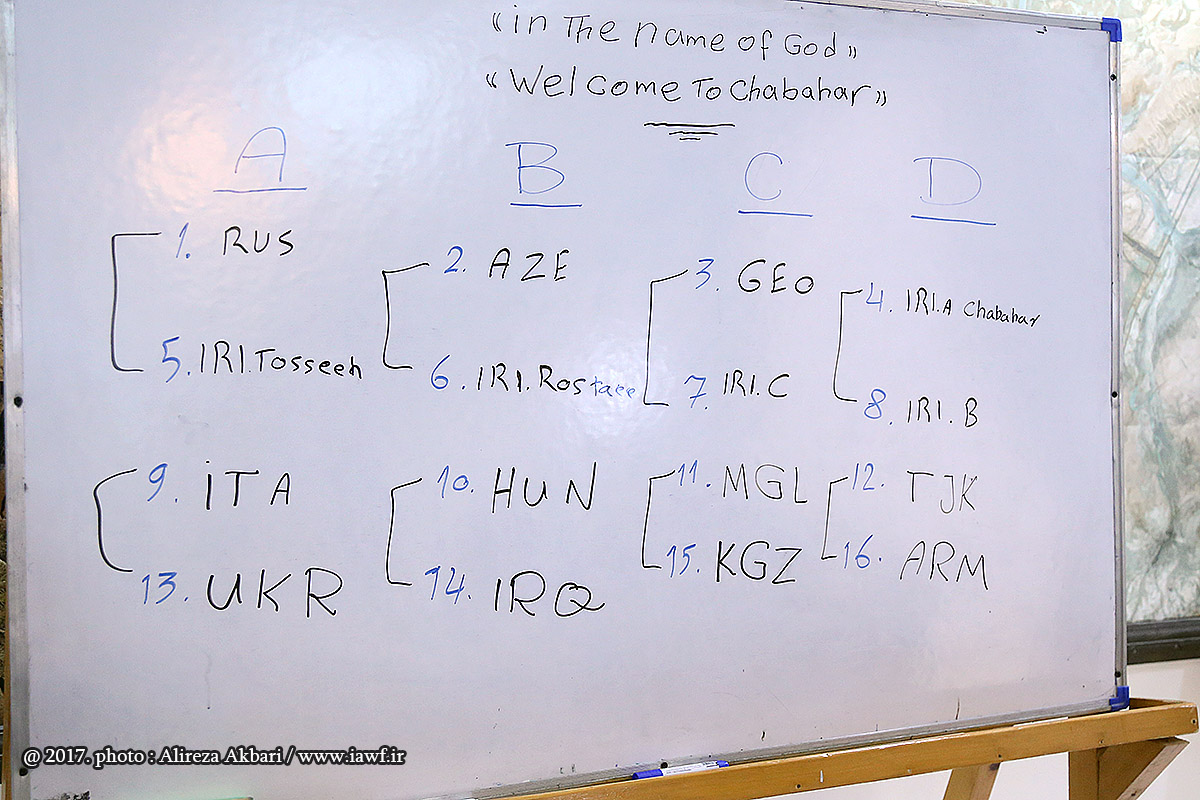 «in The name of God»
«Welcome To Chabahar»
A B C D
1. RUS 2. AZE 3. GEO 4. IRI.A Chabahar
5. IRI.Tosseeh 6. IRI.Rostaee 7. IRI.C 8. IRI.B
9. iTA 10. HUN 11. MGL 12. TJK
13. UKR 14. IRQ 15. KGZ 16. ARM
@ 2017. photo : Alireza Akbari / www.iawf.ir